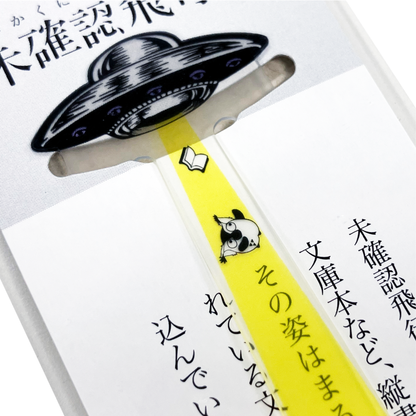 かくに
未確認飛行
未確認飛行
文庫本など、縦書
その姿はまる
れている文
込んでい